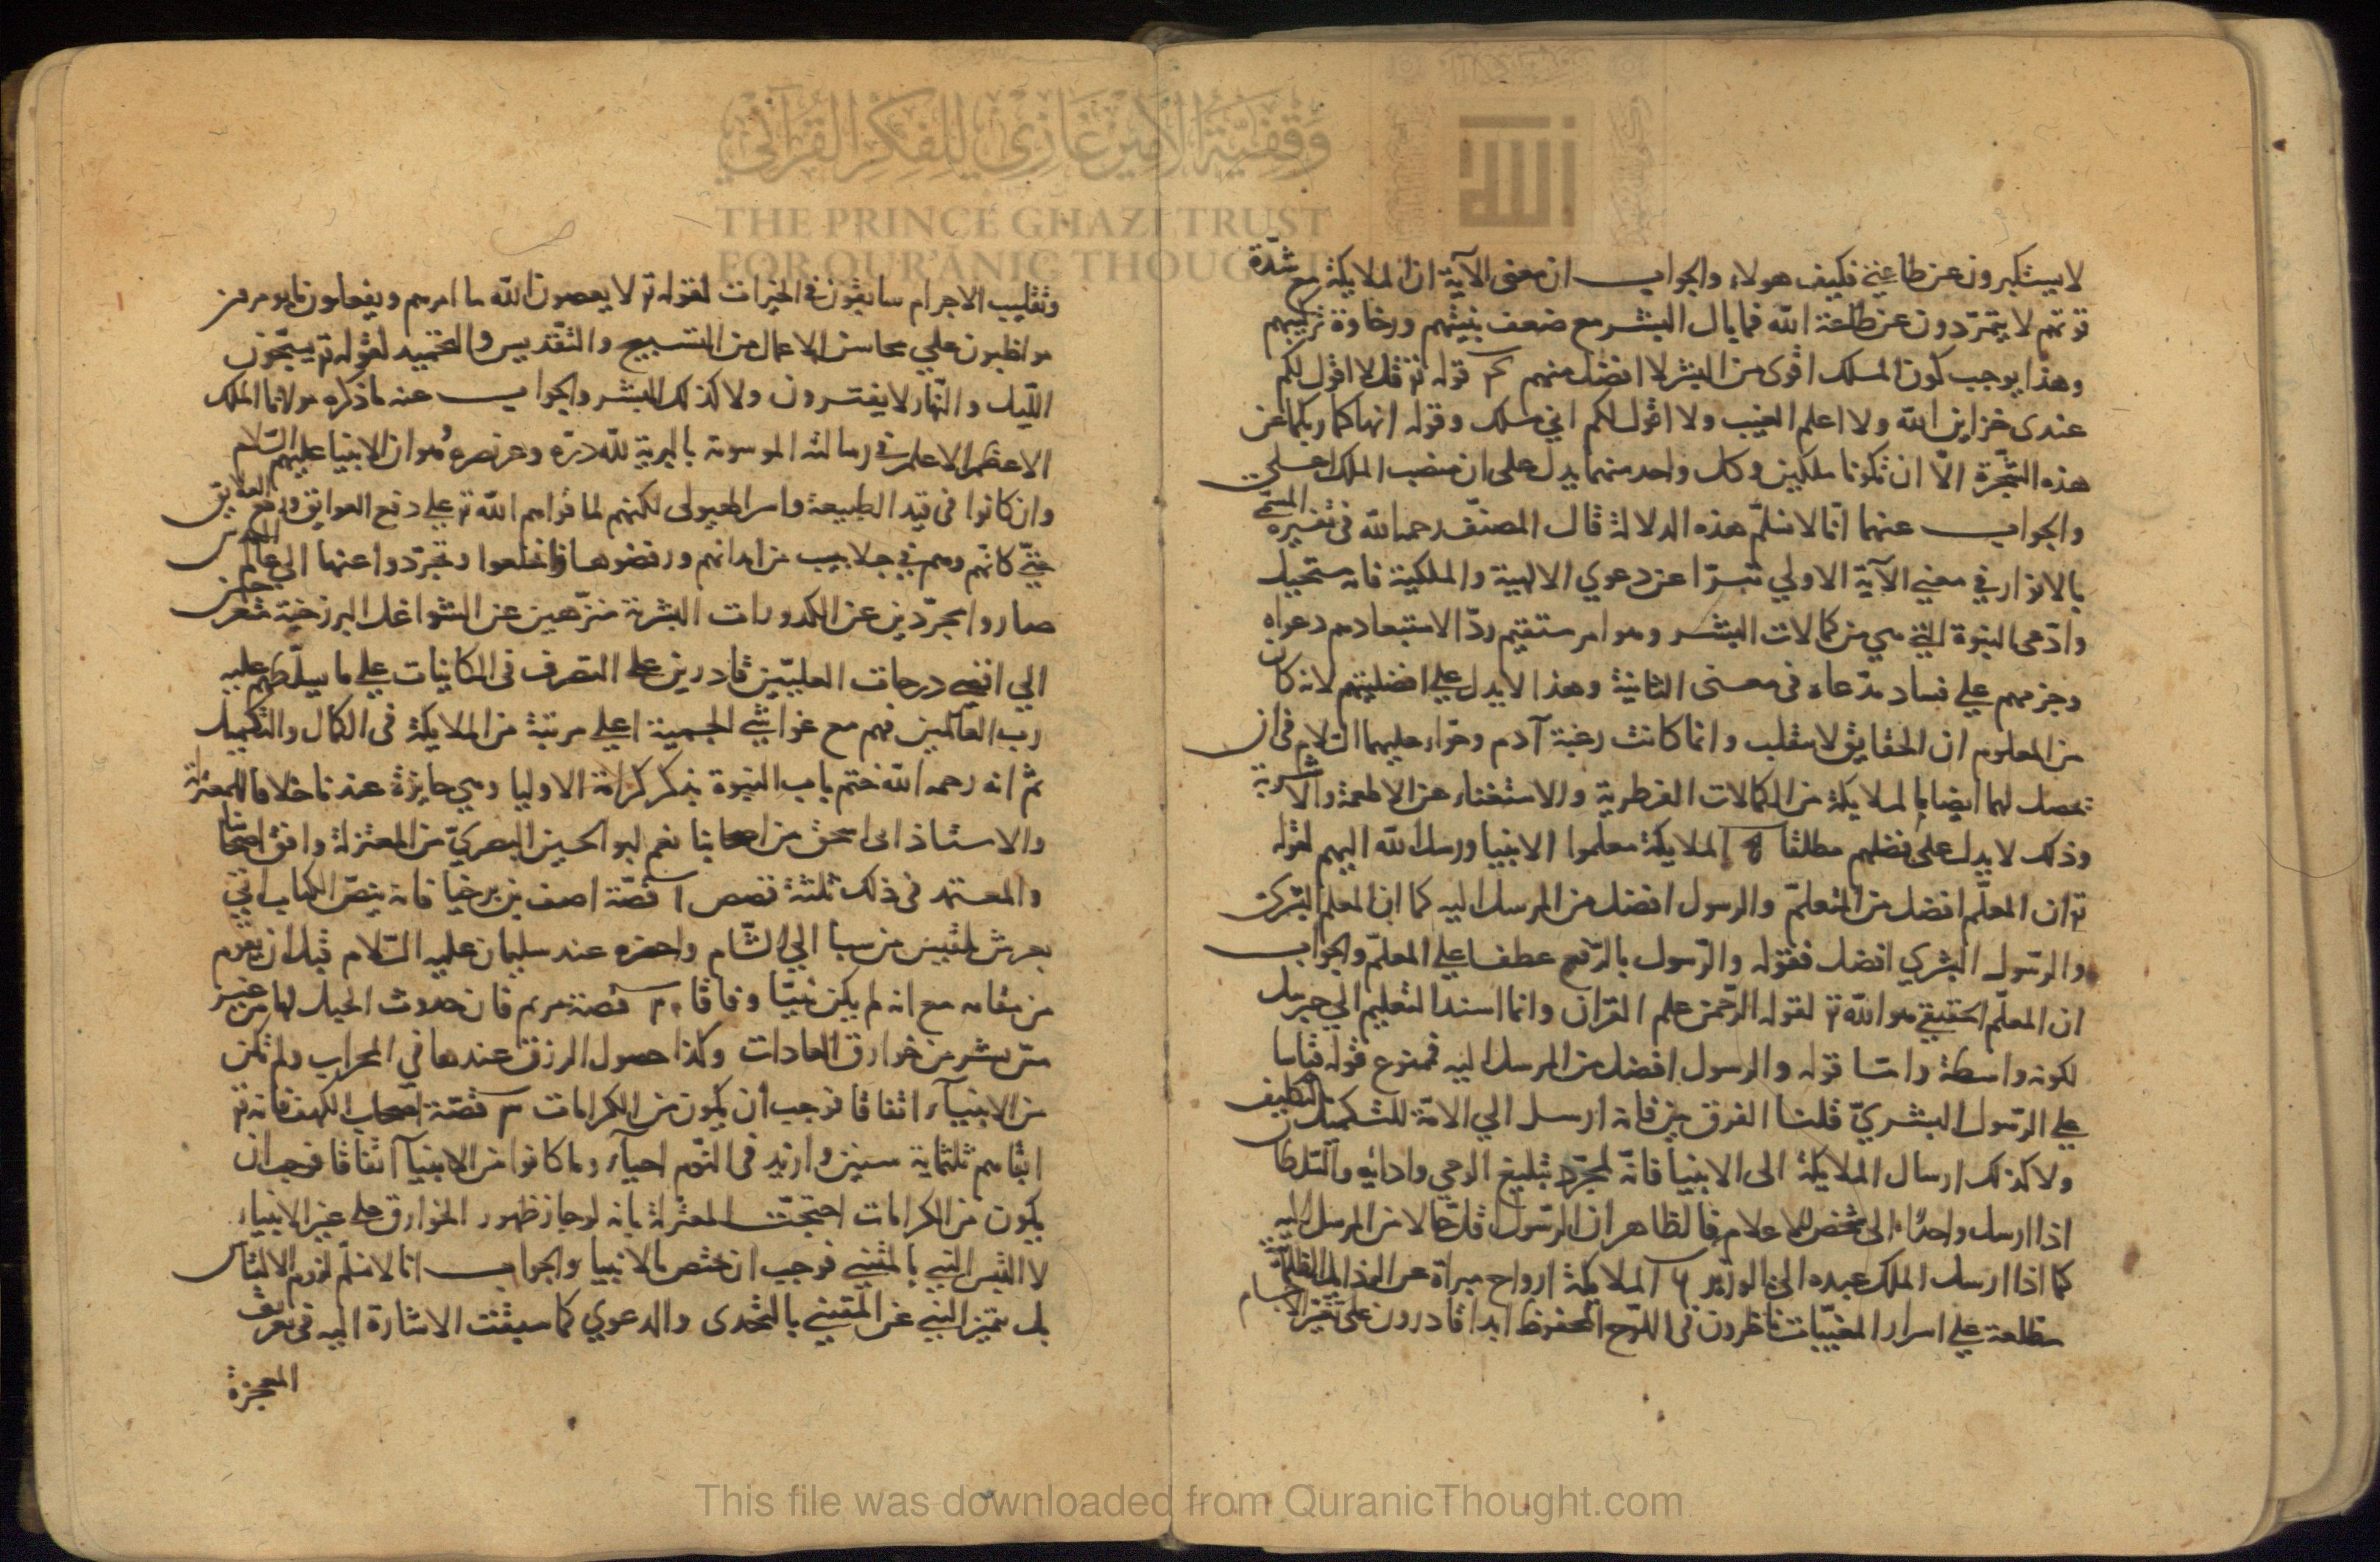 وقفية الأمير غازي للفكر القرآني
THE PRINCE GHAZI TRUST
FOR QUR'ĀNIC THOUGHT
لا يستكبرون عن طاعتي فكيف هولاء والجواب ان معنى الآية ان الملايكة مع شدّة
قوتهم لا يتمرّدون عن طاعة الله فما بال البشر مع ضعف بنيتهم ورخاوة تركيبهم
وهذا يوجب كون الملك اقوى من البشر لا افضل منهم ٣ قوله تع قل لا اقول لكم
عندى خزاين الله ولا اعلم الغيب ولا اقول لكم اني ملك وقوله انهاكما ربكما عن
هذه الشّجرة الّا ان تكونا ملكين وكل واحد منهما يدل على ان منصب الملك اعلى
والجواب عنهما انّا لا نسلّم هذه الدلالة قال المصنّف رحمه الله فى تفسيره المسمّى
بالانوار في معني الآية الاولي تبرّا عن دعوي الالهية والملكية فانه مستحيل
وادّعى النبوة التي هي من كمالات البشر وهو امر مستقيم ردّا لاستبعادهم دعواه
وجزمهم علي فساد مدّعاه فى معنى الثانية وهذا لا يدل علي افضليتهم لانه كان
من المعلوم ان الحقايق لا تنقلب وانما كانت رغبة آدم وحوّاء عليهما السّلام فى ان
تحصل لهما ايضا ما لملايكة من الكمالات الفطرية والاستغناء عن الاطعمة والاشربة
وذلك لا يدل على فضلهم مطلقا الملايكة معلموا الانبيا ورسل الله اليهم لقوله
تع ان المعلّم افضل من المتعلمّ والرسول افضل من المرسل اليه كما ان المعلم البشرى
والرّسول البشري افضل فقوله والرّسول بالرّفع عطف علي المعلمّ والجواب
ان المعلّم الحقيقي هو الله تع لقوله الرّحمن علم القران وانما اسند التعليم الي جبريل
لكونه واسطة وامّا قوله والرسول افضل من المرسل اليه فممنوع قوله قياسا
علي الرّسول البشريّ قلنا الفرق بيّن فانه ارسل الي الامّة للتكميل والتكليف
ولا كذلك ارسال الملايكة الى الانبيا فانّه لمجرّد تبليغ الوحي وادائه والسّلطان
اذا ارسل واحدًا الى شخص للاعلام فالظاهر ان الرّسول قلّ حالا من المرسل اليه
كما اذا ارسل الملك عبده الي الوزير ٦ الملايكة ارواح مبراة عن
مطلعة علي اسرار المغيّبات ناظرون فى اللّوح المحفوظ ابدا قادرون على تغيّر الاجسام
وتقليب الاجرام سابقون في الخيرات لقوله تع لا يعصون الله ما امرهم ويفعلون ما يومرون
مواظبون علي محاسن الاعمال من التسبيح والتقّديس والتحميد لقوله تع يسبّحون
اللّيل والنّهار لا يفترون ولا كذلك البشر والجواب عنه ما ذكره مولانا الملك
الاعظم الاعلم في رسالته الموسومة بالبرية للّه درّه وعز نصره وهو ان الانبيا عليهم السّلام
وان كانوا فى قيد الطبيعة واسر الهيولى لكنهم لما قواهم الله تع علي دفع العوايق ورفع العلايق
حتّي كانّهم وهم في جلابيب من ابدانهم ورفضوها وانخلعوا وتجرّدوا عنها الي عالم القدس
صاروا مجرّدين عن الكدورات البشرية منزّهين عن الشواغل البرزخية
الي اقصي درجات العليّين قادرين علي التصرف فى الكاينات علي ما يسلّطهم عليه
رب العالمين فهم مع غواشي الجسمية اعلي مرتبة من الملايكة فى الكمال والتكميل
ثمّ انه رحمه الله ختم باب النبوة بذكر كرامة الاوليا وهي جايزة عندنا خلافا للمعتزلة
والاستاذ ابى اسحق من اصحابنا نعم ابو الحسين البصريّ من المعتزلة وافق اصحابنا
والمعتمد فى ذلك ثلثة قصص ا قصّة اصف بن برخيا فانه بنصّ الكتاب اتي
بعرش بلقيس من سبا الي الشّام واحضره عند سليمان عليه السّلام قبل ان يقوم
من مقامه مع انه لم يكن نبيّا وفاقا ٢ قصّة مريم فان حدوث الحبل لها من غير
مسّ بشر من خوارق العادات وكذا حصول الرزق عندها في المحراب ولم تكن
من الانبياء اتفاقا فوجب أن يكون من الكرامات ٣ قصّة اصحاب الكهف فانه تع
ابقاهم ثلثماية سنين وازيد فى النّوم احياء وما كانوا من الانبيا اتفاقا فوجب ان
يكون من الكرامات احتجّت المعتزلة بانه لو جاز ظهور الخوارق علي غير الانبياء
لا التبس النبي بالمتنبي فوجب ان تختص بالانبيا والجواب انا لا نسلّم لزوم الالتباس
بل يتميز النبي عن المتنبي بالتحدى والدعوي كما سبقت الاشارة اليه فى تعريف
المعجزة
This file was downloaded from QuranicThought.com